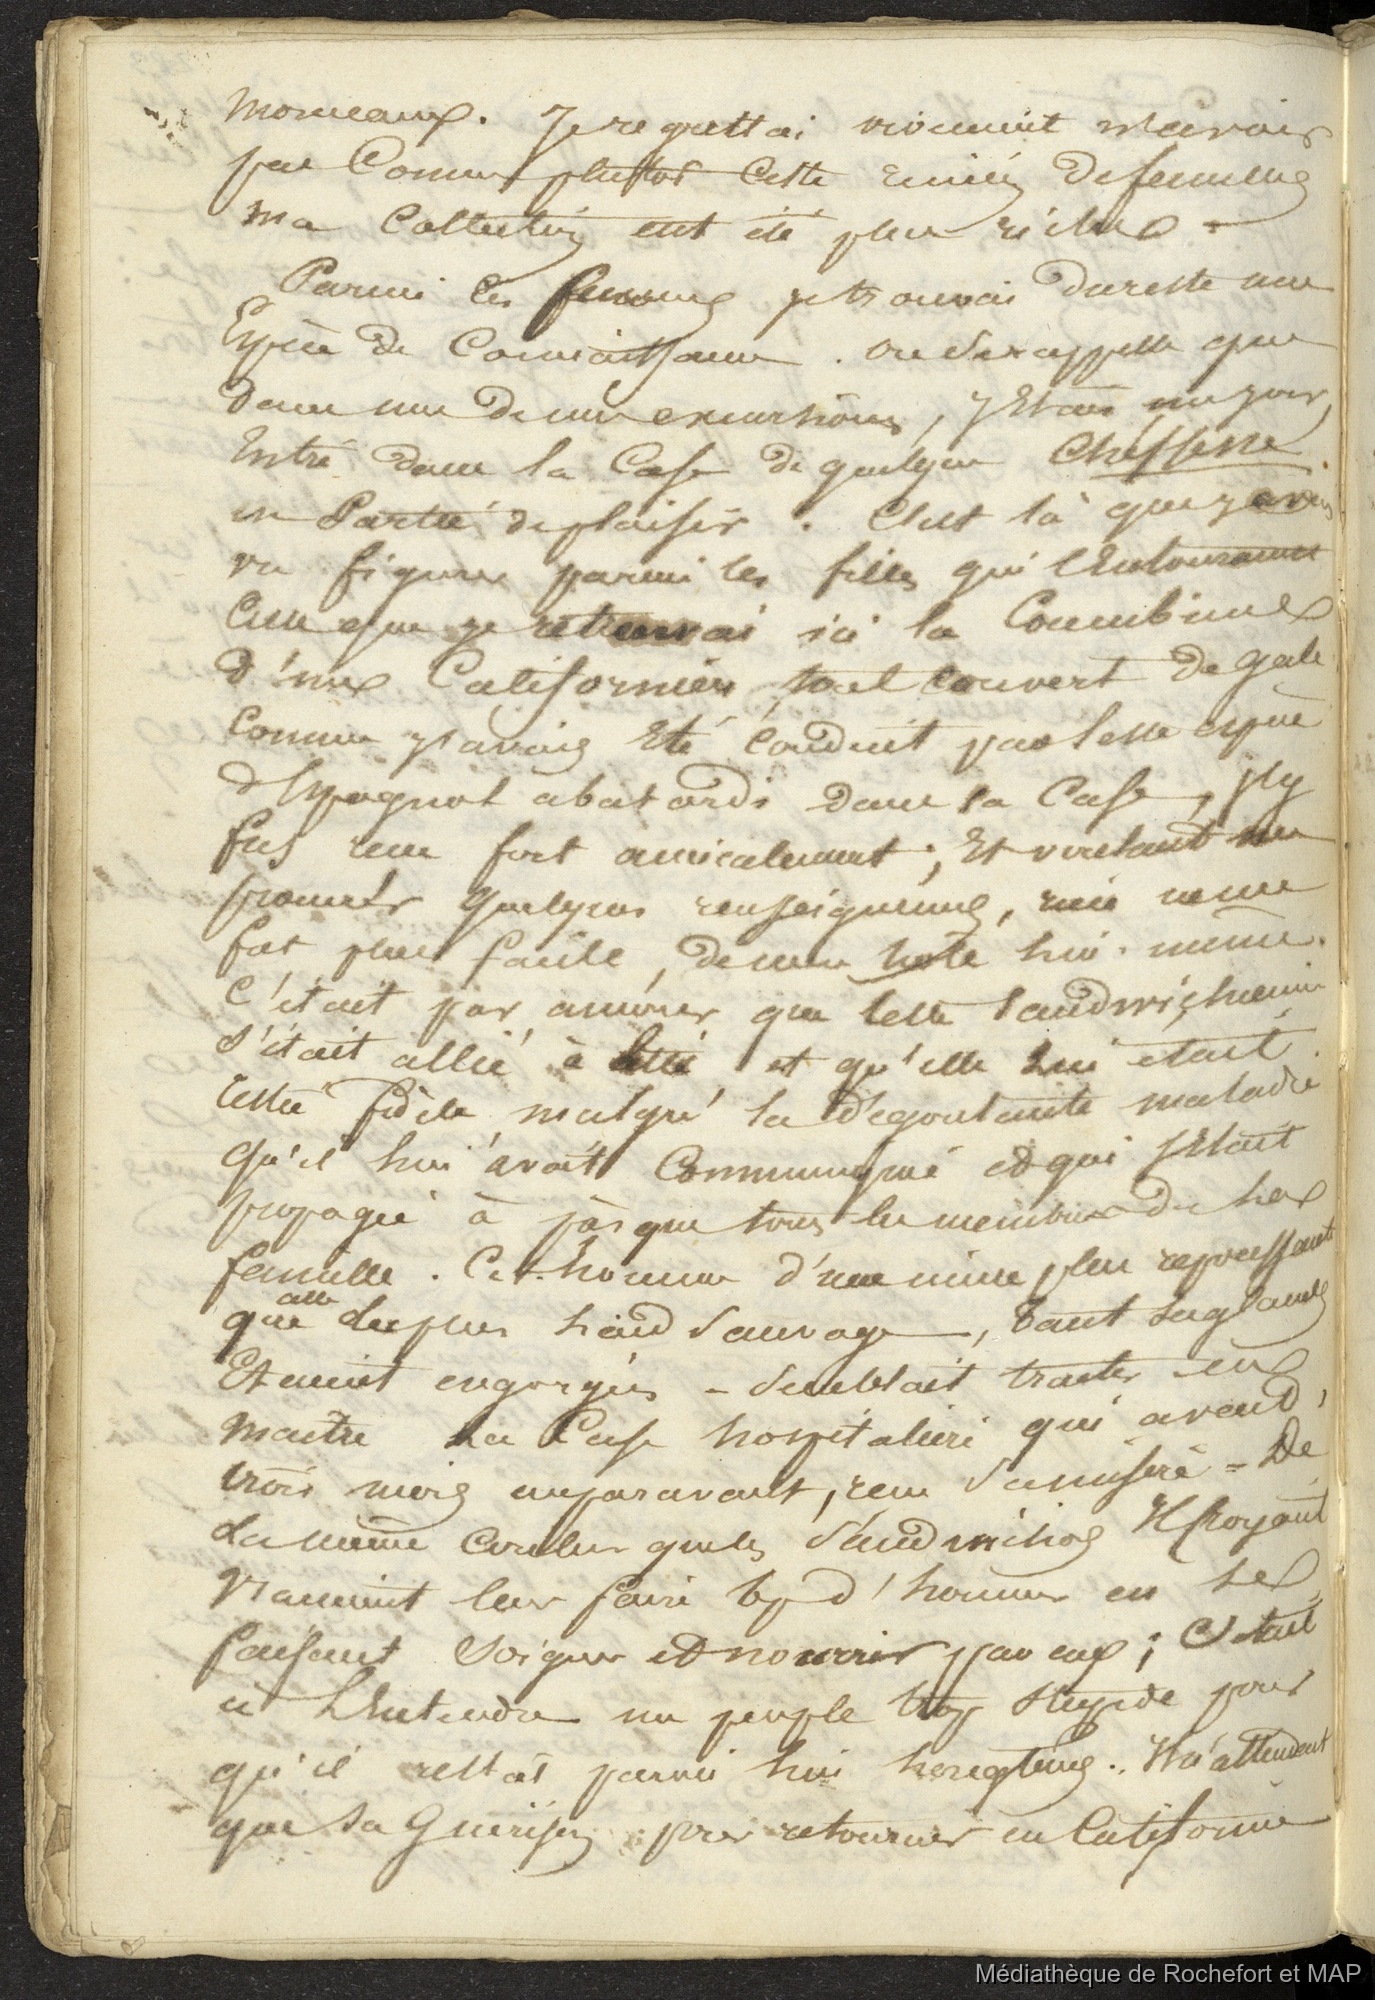 morceaux. Je regrettai vivement n'avoir
pas connu plutot cette reunion de femmes
ma collection eut été plus riche -
Parmi les femmes je trouvai dureste une
Espèce de connaissance. on se rappelle que
dans une de mes excursions, j'étais un jour,
Entré dans la Case de quelque cheffesse
en Partie de plaisir. C'est là que j'avais
vu figurer parmi les filles qui l'Entouraient
celle que je retrouvai ici la Concubine
d'un Californien, tout couvert de gale
comme j'avais Eté conduit par cette espèce
d'Espagnol abatardi dans sa Case, j'y
fus reçu fort amicalement; Et voulant me
procurer quelques renseignemens, rien ne me
fut plus facile, de mon hôte lui-même.
C'était par amour que cette Sandwichienne
s'était allié à lui et qu'elle lui était
restée fidele malgré la dégoutante maladie
qu'il lui avait communiqué et qui s'était
propagée à presque tous les membres de la
famille. Cet homme d'une mine plus repoussante
que celle du plus hideux Sauvage, tant ses glandes
Etaient engorgées - Semblait traiter en
maitre la Case hospitaliere qui avait,
trois mois auparavant, reçu sa misère - De
la même couleur que les Sandwichois Il croyait
vraiment leur faire trop d'honneur en se
faisant soigner et nourrir par eux; C'était
à L'Entendre un peuple trop stupide pour
qu'il restât parmi lui longtems. Il n'attendait
que sa Guérison pour retourner en Californie
Médiathèque de Rochefort et MAP